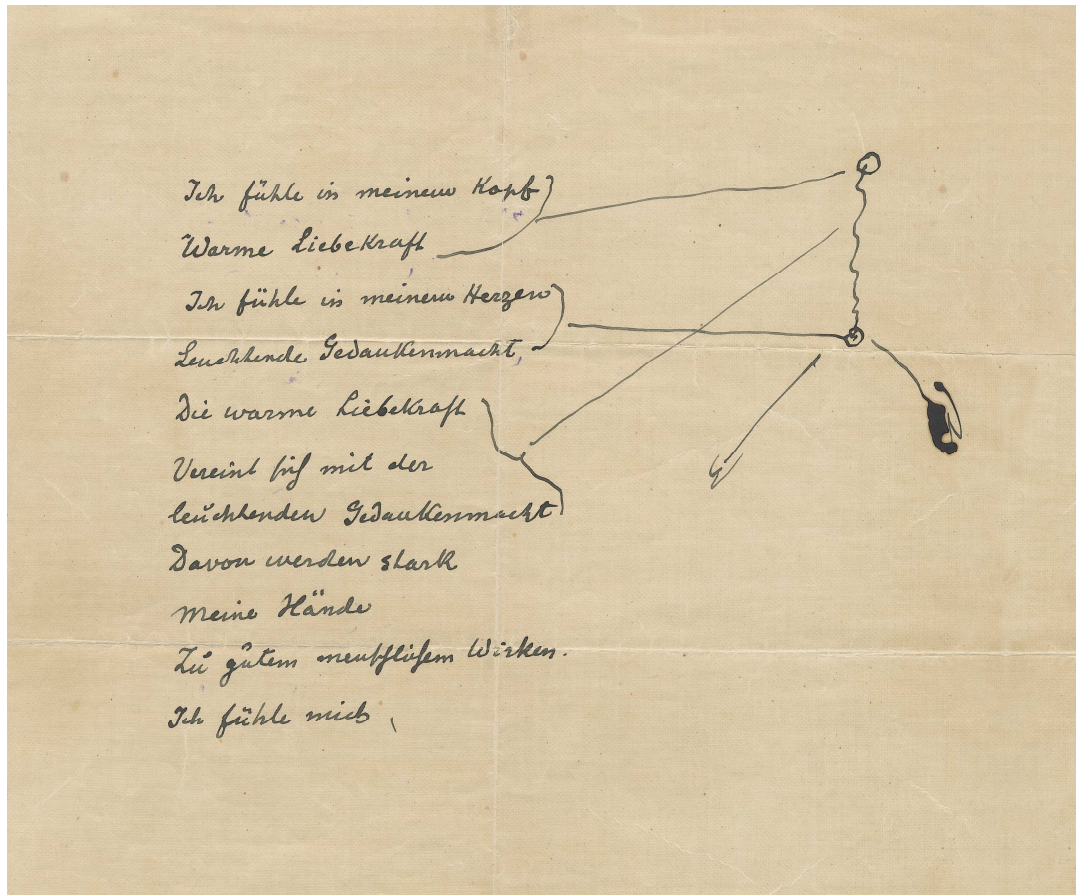 Ich fühle in meinem Kopf
Warme Liebekraft
Ich fühle in meinem Herzen
Leuchtende Gedankenmacht,
Die warme Liebekraft
Vereint sich mit der
leuchtenden Gedankenmacht
Davon werden stark
meine Hände
Zu gutem menschlichem Wirken.
Ich fühle mich